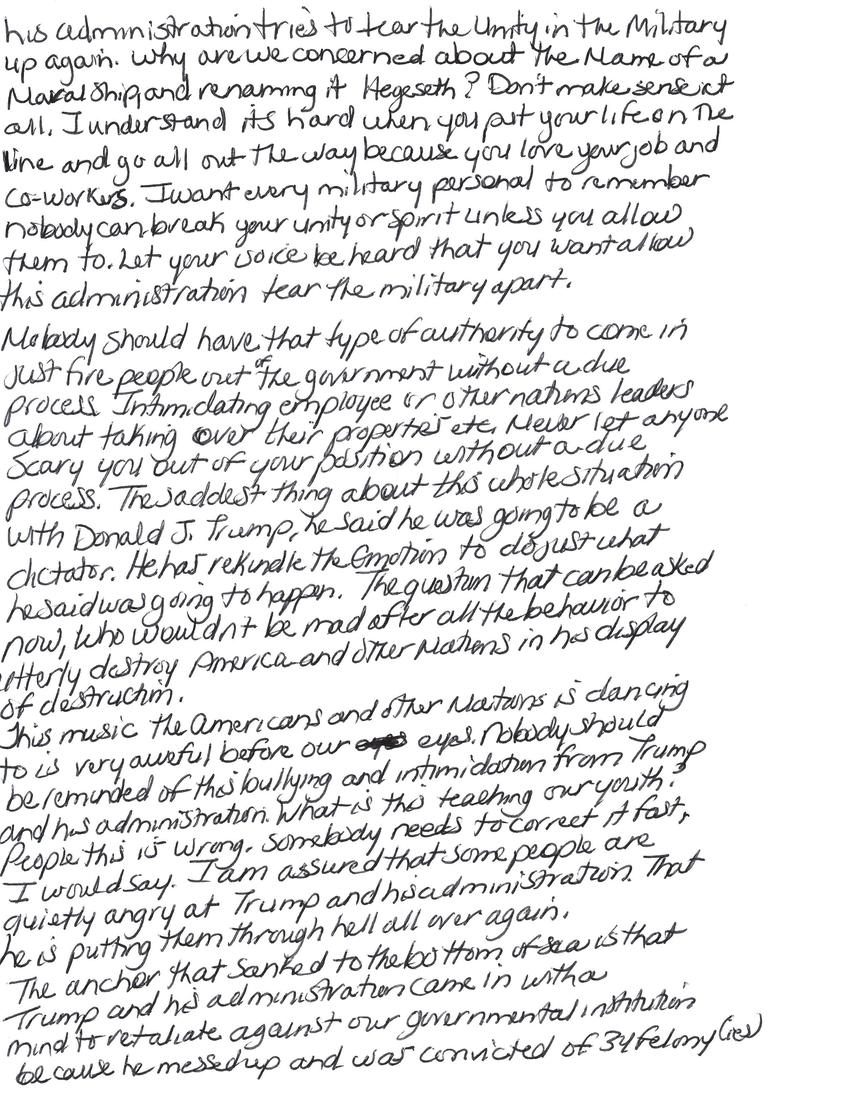 his administration tries to tear the Unity in the Military
up again. Why are we concerned about the Name of a
Naval Ship, and renaming it Hegeseth? Don't make sense at
all. I understand its hard when you put your life on The
line and go all out the way because you love your job and
Co-workers. I want every military personal to remember
nobody can break your unity or spirit unless you allow
them to. Let your voice be heard that you want allow
this administration tear the military apart.
Nobody should have that type of authority to come in
Just fire people out of the government without a due
process Intimidating employee or other nations leaders
about taking over their properties etc. Never let anyone
Scary you out of your position without a due
process. The saddest thing about this whole situation
with Donald J. Trump, he said he was going to be a
dictator. He has rekindle the Emotion to do just what
he said was going to happen. The question that can be asked
now, who wouldn't be mad after all the behavior to
utterly destroy America and other Nations in his display
of destruction.
This music the Americans and other Nations is dancing
to is very aweful before our eyes. Nobody should
be reminded of this bullying and intimidation from Trump
and his administration. What is this teaching our youth?
People this is wrong. Somebody needs to correct it fast,
I would say. I am assured that some people are
quietly angry at Trump and his administration. That
he is putting them through hell all over again.
The anchor that sanked to the bottom of sea is that
Trump and his administration came in with a
mind to retaliate against our governmental institution
because he messed up and was convicted of 34 felony(ies)